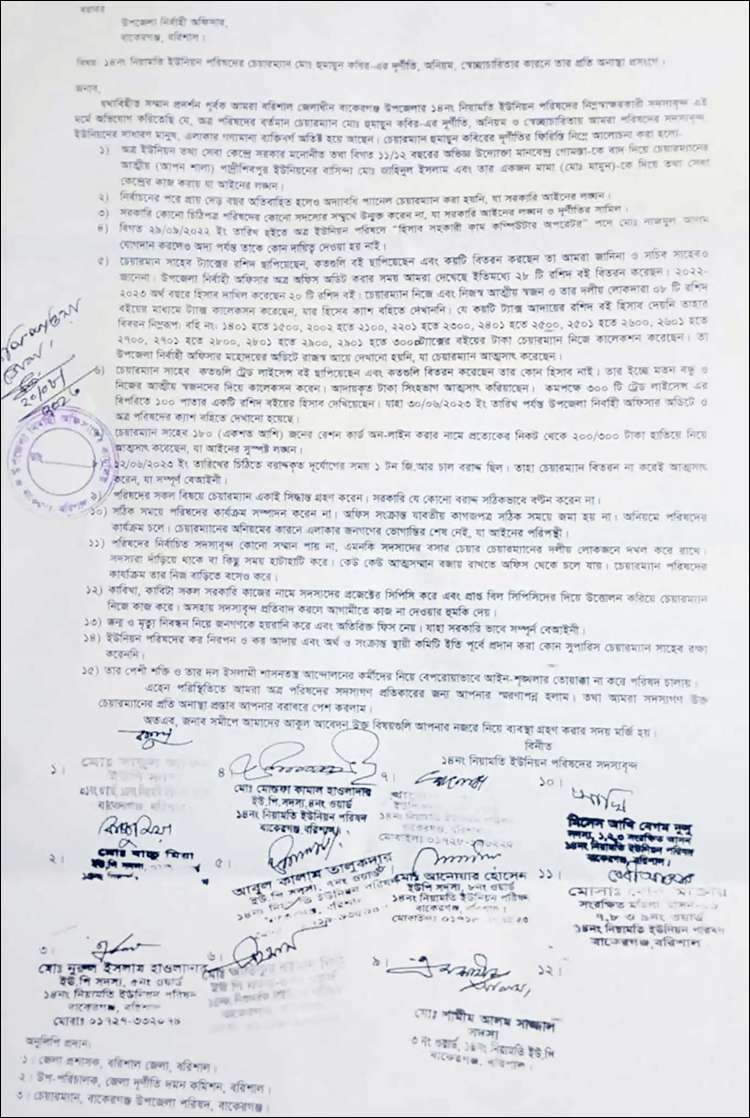 বরাবর
উপজেলা নির্বাহী অফিসার,
বাকেরগঞ্জ, বরিশাল।
বিষয়: ১৪নং নিয়ামতি ইউনিয়ন পরিষদের চেয়ারম্যান মোঃ হুমায়ুন কবির-এর দূর্ণীতি, অনিয়ম, স্বেচ্ছাচারিতার কারনে তার প্রতি অনাস্থা প্রসংগে।
জনাব,
যথাবিহীত সম্মান প্রদর্শন পূর্বক আমরা বরিশাল জেলাধীন বাকেরগঞ্জ উপজেলার ১৪নং নিয়ামতি ইউনিয়ন পরিষদের নিম্নস্বাক্ষরকারী সদস্যবৃন্দ এই
মর্মে অভিযোগ করিতেছি যে, অত্র পরিষদের বর্তমান চেয়ারম্যান মোঃ হুমায়ুন কবির-এর দূর্ণীতি, অনিয়ম ও স্বেচ্ছাচারিতায় আমরা পরিষদের সদস্যবৃন্দ,
ইউনিয়নের সাধারণ মানুষ, এলাকার গণ্যমান্য ব্যক্তিবর্গ অতিষ্ট হয়ে আছেন। চেয়ারম্যান হুমায়ুন কবিরের দূর্ণীতির ফিরিস্তি নিম্নে আলোচনা করা হলো-
১) অত্র ইউনিয়ন তথ্য সেবা কেন্দ্রে সরকার মনোনীত তথা বিগত ১১/১২ বছরের অভিজ্ঞ উদ্যোক্তা মানবেন্দ্র গোমস্তা-কে বাদ দিয়ে চেয়ারম্যানের
আত্মীয় (আপন শালা) পাদ্রীশিবপুর ইউনিয়নের বাসিন্দা মোঃ জাহিদুল ইসলাম এবং তার একজন মামা (মোঃ মামুন)-কে দিয়ে তথ্য সেবা
কেন্দ্রের কাজ করায় যা আইনের লঙ্ঘন।
২) নির্বাচনের পরে প্রায় দেড় বছর অতিবাহিত হলেও অদ্যাবধি প্যানেল চেয়ারম্যান করা হয়নি, যা সরকারি আইনের লঙ্ঘন।
৩) সরকারি কোনো চিঠিপত্র পরিষদের কোনো সদস্যের সম্মুখে উন্মুক্ত করেন না, যা সরকারি আইনের লঙ্ঘন ও দূর্ণীতির সামিল।
৪) বিগত ২৯/০৯/২০২২ ইং তারিখ হইতে অত্র ইউনিয়ন পরিষদে "হিসাব সহকারী কাম কম্পিউটার অপরেটর" পদে মোঃ নাজমুল আলম
যোগদান করলেও অদ্য পর্যন্ত তাকে কোন দায়িত্ব দেওয়া হয় নাই।
৫) চেয়ারম্যান সাহেব ট্যাক্সের রশিদ ছাপিয়েছেন, কতগুলি বই ছাপিয়েছেন এবং কয়টি বিতরন করছেন তা আমরা জানিনা ও সচিব সাহেবও
জানেনা। উপজেলা নির্বাহী অফিসার অত্র অফিস অডিট করার সময় আমরা দেখেছে ইতিমধ্যে ২৮ টি রশিদ বই বিতরন করেছেন। ২০২২-
২০২৩ অর্থ বছরে হিসাব দাখিল করেছেন ২০ টি রশিদ বই। চেয়ারম্যান নিজে এবং নিজস্ব আত্মীয় স্বজন ও তার দলীয় লোকদ্বারা ০৮ টি রশিদ
বইয়ের মাধ্যমে ট্যাক্স কালেকসন করেছেন, যার হিসেব ক্যাশ বহিতে দেখাননি। যে কয়টি ট্যাক্স আদায়ের রশিদ বই হিসাব দেয়নি তাহার
বিবরন নিম্নরূপঃ বহি নং: ১৪০১ হতে ১৫০০, ২০০২ হতে ২১০০, ২২০১ হতে ২৩০০, ২৪০১ হতে ২৫০০, ২৫০১ হতে ২৬০০, ২৬০১ হতে
২৭০০, ২৭০১ হতে ২৮০০, ২৮০১ হতে ২৯০০, ২৯০১ হতে ৩০০০ ট্যাক্সের বইয়ের টাকা চেয়ারম্যান নিজে কালেকশন করেছেন। তা
উপজেলা নির্বাহী অফিসার মহোদয়ের অডিটে রাজস্ব আয়ে দেখানো হয়নি, যা চেয়ারম্যান আত্মসাৎ করেছেন।
৬) চেয়ারম্যান সাহেব কতগুলি ট্রেড লাইসেন্স বই ছাপিয়েছেন এবং কতগুলি বিতরন করেছেন তার কোন হিসাব নাই। তার ইচ্ছে মতন বন্ধু ও
নিজের আত্মীয় স্বজনদের দিয়ে কালেকসন করেন। আদায়কৃত টাকা সিংহভাগ আত্মসাৎ করিয়াছেন। কমপক্ষে ৩০০ টি ট্রেড লাইসেন্স এর
বিপরিতে ১০০ পাতার একটি রশিদ বইয়ের হিসাব দেখিয়েছেন। যাহা ৩০/০৬/২০২৩ ইং তারিখ পর্যন্ত উপজেলা নির্বাহী অফিসার অডিটে ও
অত্র পরিষদের ক্যাশ বহিতে দেখানো হয়েছে।
চেয়ারম্যান সাহেব ১৮০ (একশত আশি) জনের রেশন কার্ড অন-লাইন করার নামে প্রত্যেকের নিকট থেকে ২০০/৩০০ টাকা হাতিয়ে নিয়ে
আত্মসাৎ করেছেন, যা আইনের সুস্পষ্ট লঙ্ঘন।
১২/০৬/২০২৩ ইং তারিখের চিঠিতে বরাদ্দকৃত দূর্যোগের সময় ১ টন জি.আর চাল বরাদ্দ ছিল। তাহা চেয়ারম্যান বিতরন না করেই আত্মসাৎ
করেন, যা সম্পূর্ণ বেআইনী।
৯) পরিষদের সকল বিষয়ে চেয়ারম্যান একাই সিদ্ধান্ত গ্রহণ করেন। সরকারি যে কোনো বরাদ্দ সঠিকভাবে বন্টন করেন না।
১০) সঠিক সময়ে পরিষদের কার্যক্রম সম্পাদন করেন না। অফিস সংক্রান্ত যাবতীয় কাগজপত্র সঠিক সময়ে জমা হয় না। অনিয়মে পরিষদের
কার্যক্রম চলে। চেয়ারম্যানের অনিয়মের কারনে এলাকার জনগণের ভোগান্তির শেষ নেই, যা আইনের পরিপন্থী।
১১) পরিষদের নির্বাচিত সদস্যবৃন্দ কোনো সম্মান পায় না, এমনকি সদস্যদের বসার চেয়ার চেয়ারম্যানের দলীয় লোকজনে দখল করে রাখে।
সদস্যরা দাঁড়িয়ে থাকে বা কিছু সময় হাটাহাটি করে। কেউ কেউ আত্মসম্মান বজায় রাখতে অফিস থেকে চলে যায়। চেয়ারম্যান পরিষদের
কার্যক্রম তার নিজ বাড়িতে বসেও করে।
১২) কাবিখা, কাবিটা সকল সরকারি কাজের নামে সদস্যদের প্রজেক্টের সিপিসি করে এবং প্রাপ্ত বিল সিপিসিদের দিয়ে উত্তোলন করিয়ে চেয়ারম্যান
নিজে কাজ করে। অসহায় সদস্যবৃন্দ প্রতিবাদ করলে আগামীতে কাজ না দেওয়ার হুমকি দেয়।
১৩) জন্ম ও মৃত্যু নিবন্ধন নিয়ে জনগণকে হয়রানি করে এবং অতিরিক্ত ফিস নেয়। যাহা সরকারি ভাবে সম্পূর্ন বেআইনী।
১৪) ইউনিয়ন পরিষদের কর নিরূপন ও কর আদায় এবং অর্থ ও সংক্রান্ত স্থায়ী কমিটি ইতি পূর্বে প্রদান করা কোন সুপারিস চেয়ারম্যান সাহেব রক্ষা
করেননি।
১৫) তার পেশী শক্তি ও তার দল ইসলামী শাসনতন্ত্র আন্দোলনের কর্মীদের নিয়ে বেপরোয়াভাবে আইন-শৃঙ্খলার তোয়াক্কা না করে পরিষদ চালায়।
এহেন পরিস্থিতিতে আমরা অত্র পরিষদের সদস্যগণ প্রতিকারের জন্য আপনার স্মরণাপন্ন হলাম। তথা আমরা সদস্যগণ উক্ত
চেয়ারম্যানের প্রতি অনাস্থা প্রস্তাব আপনার বরাবরে পেশ করলাম।
অতএব, জনাব সমীপে আমাদের আকুল আবেদন উক্ত বিষয়গুলি আপনার নজরে নিয়ে ব্যবস্থা গ্রহণ করার সদয় মর্জি হয়।
বিনীত
১৪নং নিয়ামতি ইউনিয়ন পরিষদের সদস্যবৃন্দ
১।
৪
মোঃ মোস্তফা কামাল হাওলাদার
ইউ.পি.সদস্য,৪নং ওয়ার্ড
১৪নং নিয়ামতি ইউনিয়ন পরিষদ
বাকেরগঞ্জ বরিশাল।
৭।
১০।
মিসেস আখি বেগম নুপু
সদস্যা, ১,২,৩ সংরক্ষিত আসন
১৪নং নিয়ামতি ইউনিয়ন পরিষদ
বাকেরগঞ্জ, বরিশাল।
২।
মোঃ বাচ্চু মিয়া
৫।
আবুল কালাম তালুকদার
ইউ.পি সদস্য, ৭নং ওয়ার্ড
১৪নং নিয়ামতি ইউনিয়ন পরিষদ
মোঃ আনোয়ার হোসেন
ইউপি সদস্য, ৮নং ওয়ার্ড
১৪নং নিয়ামতি ইউনিয়ন পরিষদ
বাকেরগঞ্জ, বরিশাল।
১১।
সংরক্ষিত মহিলা
৭,৮ ও ৯নং ওয়ার্ড
১৪নং নিয়ামতি ইউনিয়ন পরিষদ
বাকেরগঞ্জ,বরিশাল
৩।
মোঃ নুরুল ইসলাম হাওলাদার
ইউ.পি সদস্য, ৫নং ওয়ার্ড
১৪নং নিয়ামতি ইউনিয়ন পরিষদ
বাকেরগঞ্জ, বরিশাল
৬।
৯।
মোঃ শামীম আলম সাজ্জাল
সদস্য
৩ নং ওয়ার্ড, ১৪নং নিয়ামতি ইউ.পি
বাকেরগঞ্জ, বরিশাল।
১২।
অনুলিপি প্রদান:
১। জেলা প্রশাসক, বরিশাল জেলা, বরিশাল।
২। উপ-পরিচালক, জেলা দূর্ণীতি দমন কমিশন, বরিশাল।
৩। চেয়ারম্যান, বাকেরগঞ্জ উপজেলা পরিষদ, বাকেরগঞ্জ।